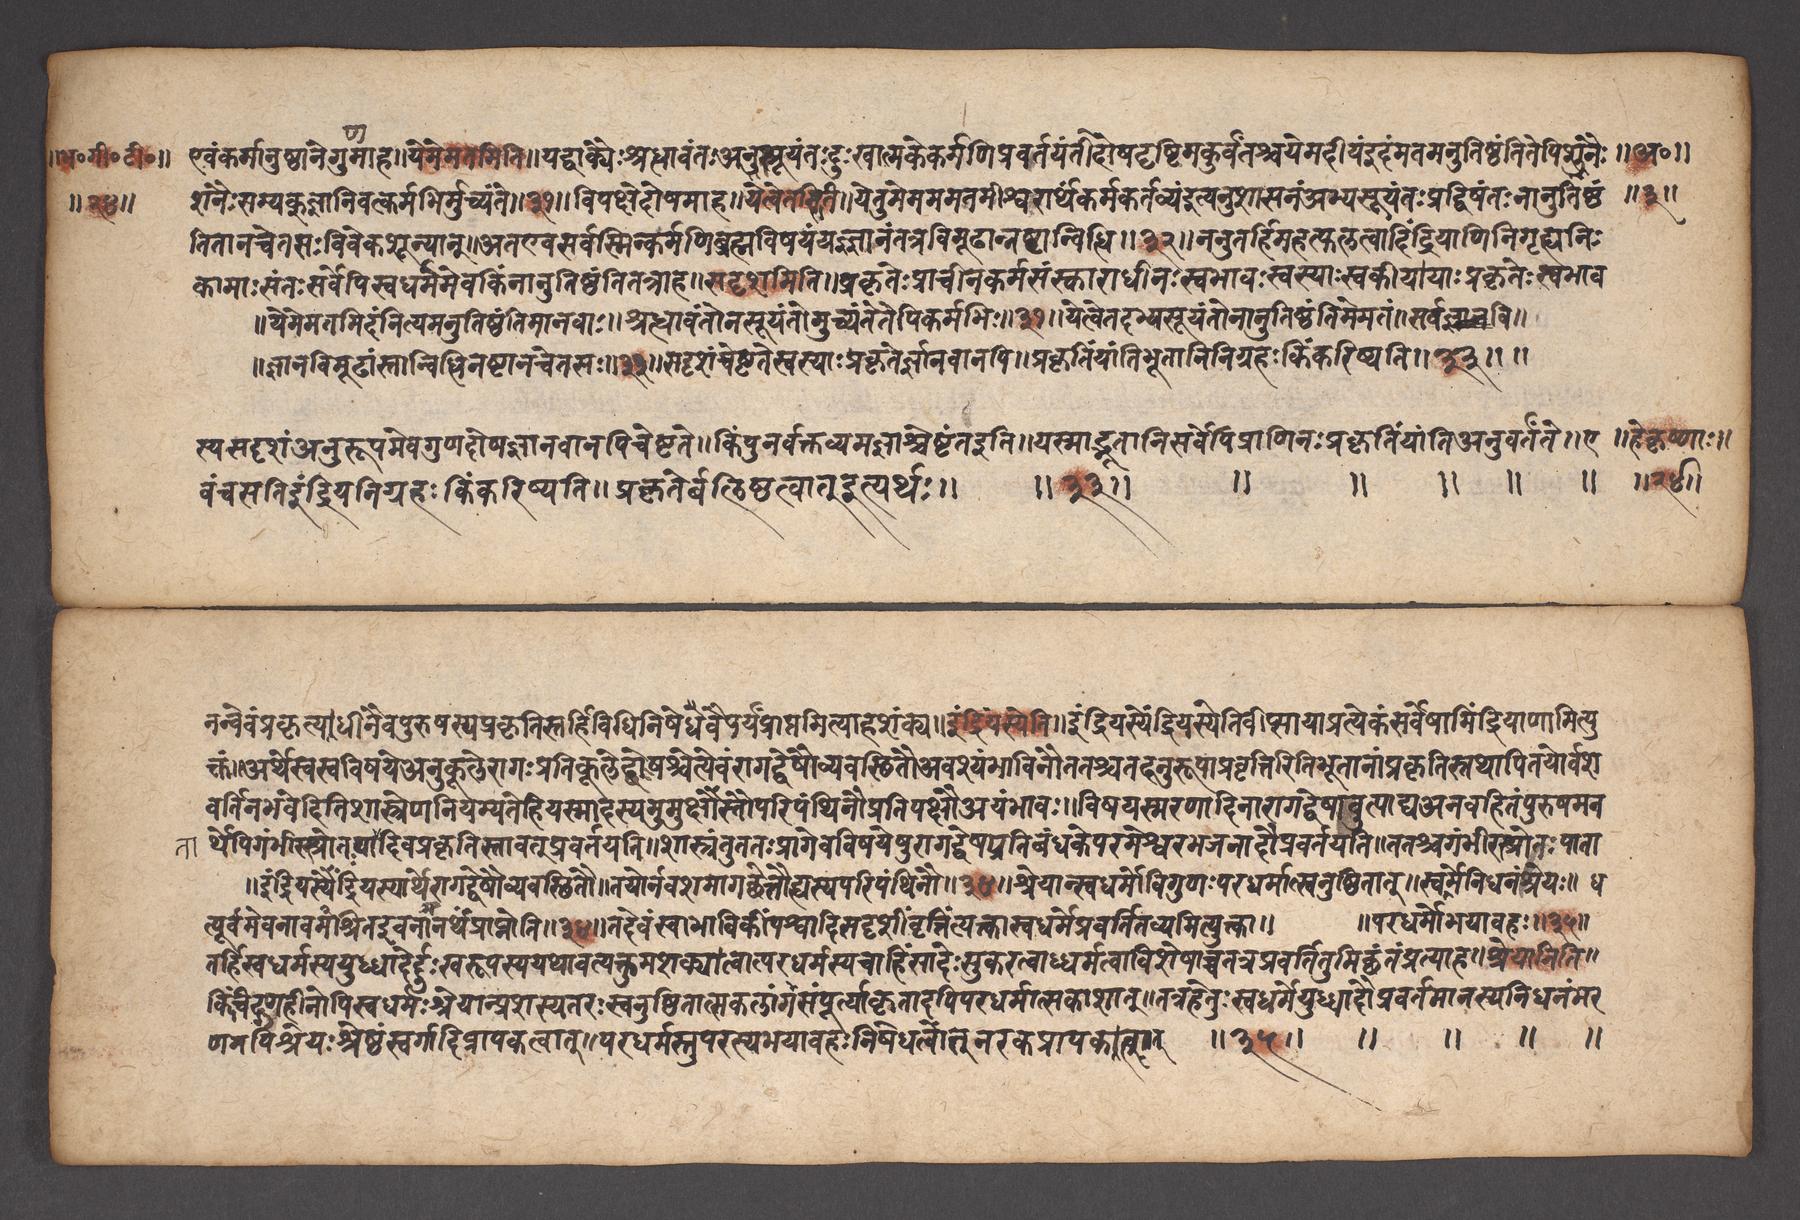 ॥भ०गी०टी०॥ एवंकर्मानुष्ठानेगुणमाह॥येमेमतमिति॥यद्वाक्येःश्रद्धावंतःअनुसूयंतःदुःखात्मकेकर्मणिप्रवर्तयंतीदोषदृष्टिमकुर्वंतश्चयेमदीयंइदंमतमनुतिष्ठंतितेपिशनैः ॥अ०॥
॥२४॥ शनैःसम्यकुज्ञानिवत्कर्मभिर्मुच्यंते॥३१॥विपक्षेदोषमाह॥येत्वेतदिति॥येतुमेममममतमीश्वरार्थंकर्मकर्तव्यंइत्यनुशासनंअभ्यसूयंतःप्रद्विषंतःनानुतिष्ठं ॥३॥
तितानचेतसःविवेकशून्यान्॥अतएवसर्वस्मिन्कर्मणिब्रह्मविषयंयज्ज्ञानंतत्रविमूढान्नष्टान्विधि॥३२॥ननुतर्हिमहत्फलत्वादिंद्रियाणिनिगृह्यनिः
कामाःसंतःसर्वेपिस्वधर्ममेवकिंनानुतिष्ठंतितत्राह॥सदृशमिति॥प्रकृतेःप्राचीनकर्मसंस्काराधीनःस्वभावःस्वस्याःस्वकीयायाःप्रकृतेःस्वभाव
॥येमेमतमिदंनित्यमनुतिष्ठंतिमानवाः॥श्रद्धावंतोनसूयंतोमुच्यंतेतेपिकर्मभिः॥३१॥येत्वेतदभ्यसूयंतोनानुतिष्ठंतिमेमतं॥सर्वज्ञानवि॥
॥ज्ञानविमूढांस्तान्विधिनष्टानचेतसः॥३२॥सदृशंचेष्टतेस्वस्याःप्रकृतेर्ज्ञानवानपि॥प्रकृतिंयांतिभूतानिनिग्रहःकिंकरिष्यति॥३३॥॥
स्यसदृशंअनुरूपमेवगुणदोषज्ञानवानपिचेष्टते॥किंपुनर्वक्तव्यमज्ञाश्चेष्टंतइति॥यस्माद्भूतानिसर्वेपिप्राणिनःप्रकृतिंयांतिअनुवर्तंते॥ए ॥हेकृष्णाः॥
वंचसतिइंद्रियनिग्रहःकिंकरिष्यति॥प्रकृतेर्बलिष्ठत्वात्इत्यर्थः॥ ॥३३॥ ॥ ॥ ॥ ॥ ॥ ॥२४॥
नन्वेवंप्रकृत्याधीनैवपुरुषस्यप्रकृतिस्तर्हिविधिनिषेधवैयर्थ्यंप्राप्तमित्याहेशंक्य॥इंद्रियस्येति॥इंद्रियस्येंद्रियस्येतिवीप्सायाप्रत्येकंसर्वेषामिंद्रियाणामित्यु
क्तं॥अर्थेस्वस्वविषयेअनुकूलेरागःप्रतिकूलेद्वेषश्चेत्येवंरागद्वेषौव्यवस्थितौअवश्यंभाविनौततश्चतदनुरूपाप्रवृत्तिरितिभूतानांप्रकृतिस्तथापितयोर्वशे
वर्तिनभवेदितिशास्त्रेणनियम्यतेहियस्मादस्यमुमुक्षोस्तौपरिपंथिनौप्रतिपक्षौअयंभावः॥विषयस्मरणादिनारागद्वेषावुत्पाद्यअनवहितंपुरुषमन
र्थेपिगंभीरस्रोतसादिवप्रकृतिस्तावत्प्रवर्तयति॥शास्त्रंतुततःप्रागेवविषयेषुरागद्वेषप्रतिबंधकेपरमेश्वरभजनादौप्रवर्तयति॥ततश्चगंभीरस्रोतःपाता
॥इंद्रियस्येंद्रियस्यार्थेरागद्वेषौव्यवस्थितौ॥तयोर्नवशमागछेत्तौह्यस्यपरिपंथिनौ॥३४॥श्रेयान्स्वधर्मोविगुणःपरधर्मात्स्वनुष्ठितात्॥स्वधर्मेनिधनंश्रेयः॥ ध
त्पूर्वमेवनावमाश्रितइवनानर्थंप्राप्नोति॥३४॥तदेवंस्वाभाविकींपश्वादिसदृशींवृत्तिंत्यक्त्वास्वधर्मेप्रवर्तितव्यमित्युक्त्वा॥ ॥परधर्मोभयावहः॥३५॥
तर्हिस्वधर्मस्ययुध्धादेर्दुःखरूपस्ययथावत्कर्तुमशक्यात्वात्परधर्मस्यचाहिंसादेःसुकरत्वाध्धर्मत्वाविशेषाच्चतत्रप्रवर्तितुमिछंतंप्रत्याह॥श्रेयानिति॥
किंचिद्गुणहीनोपिस्वधर्मःश्रेयान्प्रशस्यतरःस्वनुष्ठितात्सकलांगसंपूर्त्याकृतादपिपरधर्मात्सकाशात्॥तत्रहेतुःस्वधर्मेयुध्धादौप्रवर्तमानस्यनिधनंमर
णमपिश्रेयःश्रेष्ठंस्वर्गादिप्रापकत्वात्॥परधर्मस्तुपरस्यभयावहःनिषेधत्वात्नरकप्रापकत्वात् ॥३५॥ ॥ ॥ ॥ ॥